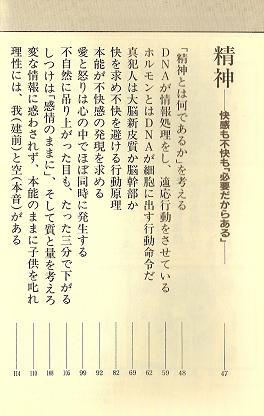 精神――快感も不快も「必要だからある」――47
「精神とは何であるか」を考える 48
DNAが情報処理をし、適応行動をさせている 59
ホルモンとはDNAが細胞に出す行動命令だ 62
真犯人は大脳新皮質か脳幹部か 69
快を求め不快を避ける行動原理 82
本能が不快感の発現を求める 92
愛と怒りは心の中でほぼ同時に発生する 99
不自然に吊り上がった目も、たった三分で下がる 105
しつけは「感情のままに」、そして質と量を考えろ 108
変な情報に惑わされず、本能のままに子供を叱れ 110
理性には、我(建前)と空(本音)がある 114